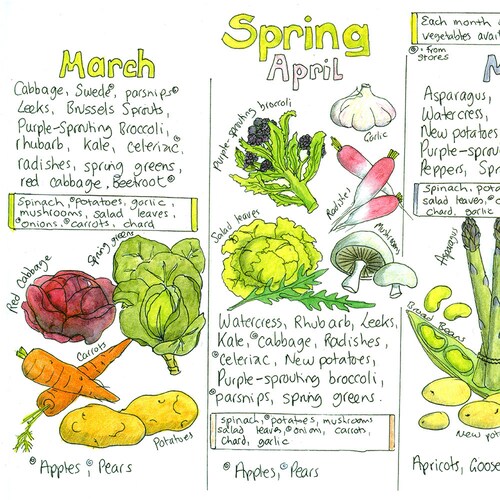 Spring
March
Cabbage, Swede°, parsnips°
Leeks, Brussels Sprouts,
Purple-Sprouting Broccoli,
rhubarb, Kale, celeriac°,
radishes, sprung greens,
red cabbage, Beetroot°
spinach, °potatoes, garlic,
mushrooms, salad leaves,
°onions, °carrots, chard
Red Cabbage
Spring greens
Carrots
Potatoes
°Apples, °Pears
April
Purple-sprouting broccoli
Garlic
Radishes
Salad leaves
Mushrooms
Watercress, Rhubarb, Leeks,
Kale, °Cabbage, Radishes,
°celeriac, New potatoes,
Purple-sprouting broccoli,
°parsnips, spring greens.
spinach, °potatoes, mushrooms
salad leaves, °onions, carrots,
chard, garlic
°Apples, °Pears
Each month
vegetables
°= from
stores
Asparagus,
Watercress,
New potatoes
Purple-sprou
Peppers, Spr
spinach, pot
salad leaves,
chard, garlic
Asparagus
Broad Beans
New pot
Apricots, Goose